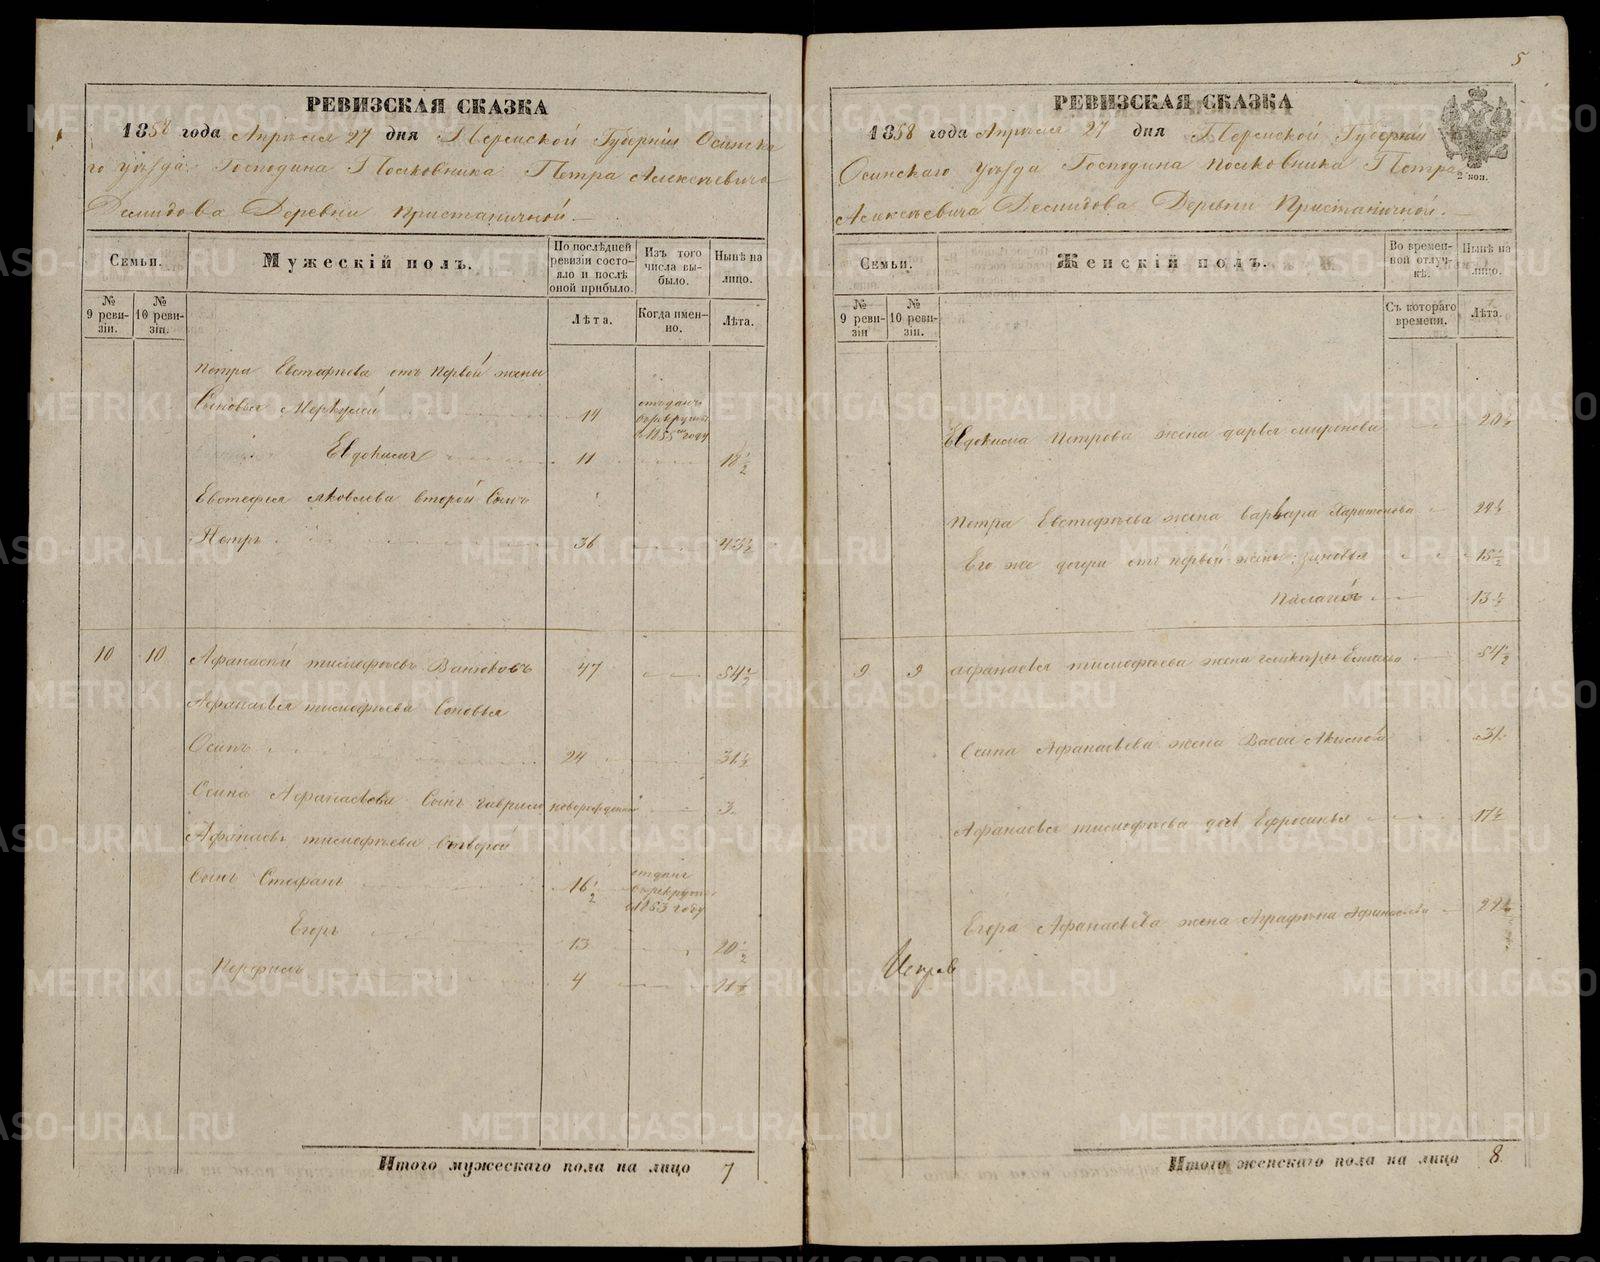 5
РЕВИЗСКАЯ СКАЗКА
1858 года Апрѣля 27 дня Пермской Губерніи Осинска
го уѣзда Господина Полковника Петра Алексѣевича
Демидова Деревни Пристаничной
Семьи.
Мужескій полъ.
По послѣдней ревизіи состояло и послѣ оной прибыло.
Изъ того числа выбыло.
Нынѣ на лицо.
№ 9 ревизіи.
№ 10 ревизіи.
Лѣта.
Когда именно.
Лѣта.
Петра Евстафѣева отъ Первой жены
Сыновья Меркулей 14 отъданъ в рекруты в 1855 году
Евдокимъ 11 18 1/2
Евстефея яковлева второй Сынъ
Петръ 36 43 1/2
10 10 Афанасій тимофѣевъ Ванюковъ 47 54 1/2
Афанасья тимофѣева Сыновья
Осипъ 24 31 1/2
Осипа Афанасьева Сынъ гаврило новорожденный 3
Афанасья тимофѣева второй
Сынъ Стефанъ 16 1/2 отданъ в рекруты в 1853 году
Егоръ 13 20 1/2
Перфилъ 4 11 1/2
Итого мужескаго пола на лицо 7
РЕВИЗСКАЯ СКАЗКА
1858 года Апрѣля 27 дня Пермской Губерніи
Осинскаго уѣзда Господина полковника Петра
2 коп.
Алексѣевича Демидова Деревни Пристаничной.
Семьи.
Женскій полъ.
Во временной отлучкѣ.
Нынѣ на лицо.
№ 9 ревизіи
№ 10 ревизіи.
Съ котораго времени.
Лѣта.
Евдокима Петрова жена дарья смирнова 20 1/2
Петра Евстафѣева жена варвара Харитонова
Его же дочери отъ первой жены: зиновья 15 1/2
Палагея 13 1/2
9 9 Афанасья тимофѣева жена 54 1/2
Осипа Афанасьева жена Васса Акимова 31
Афанасья тимофѣева дочь Ефросинья 17 1/2
Егора Афанасьева жена Аграфена Афанасьева 22
Итого женскаго пола на лицо 8
METRIKI.GASO-URAL.RU